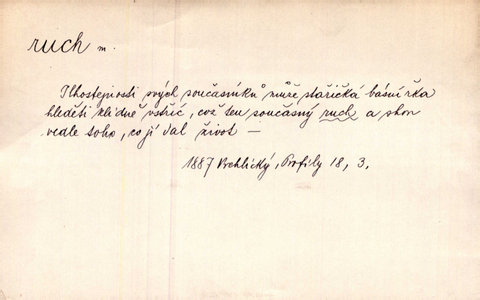 ruch m.
Lhostejnosti svých současníků může stařičká básnířka
hleděti klidně vstříc, což ten současný ruch a shon
vedle toho, co jí dal život —
1887 Vrchlický, Profily 18, 3,